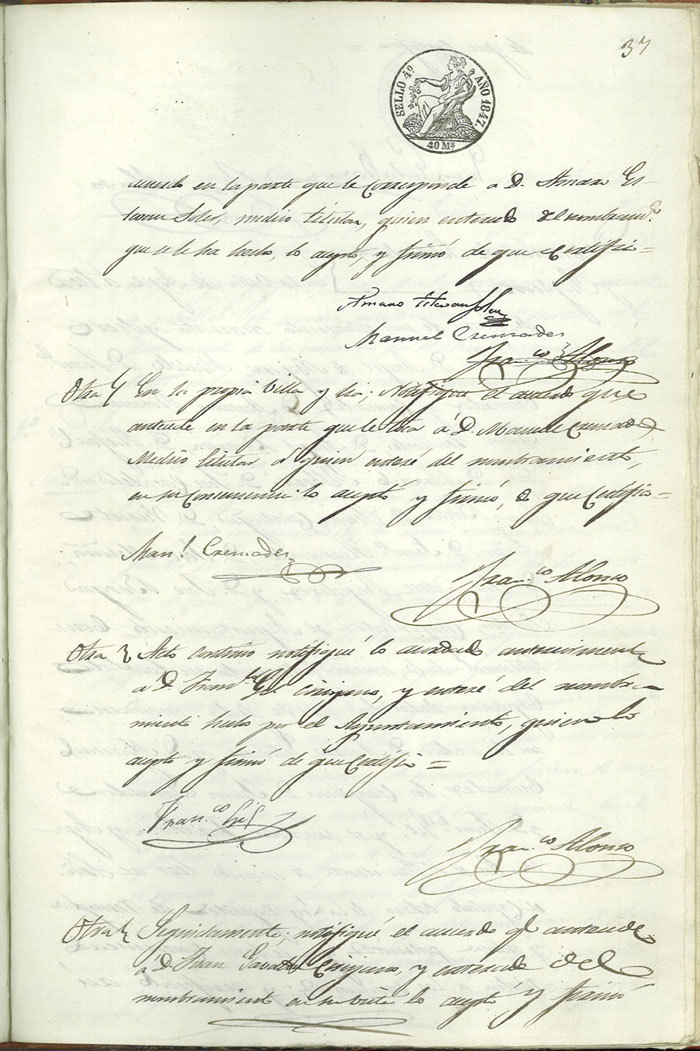 37
SELLO 4º AÑO 1847.
40 Ms
acuerdo en la parte que le corresponde a D. Amaro Es-
tevan Soler, medico titular, quien enterado del nombramto.
que se le ha hecho, lo aceptó, y firmó de que Certifico =
Amaro Estevan Soler
Manuel Cremades
Franco Alonso
Otra En la propia Villa y dia; Notifiqué el acuerdo que
antecede en la parte que le toca á D. Manuel Cremades
Medico titular á quien enteré del nombramiento,
en su Consecuencia lo aceptó y firmó, de que Certifico =
Manl. Cremades
Franco Alonso
Otra Acto continuo notifiqué lo acordado anteriormente
a D. Franco Gil Cirujano, y enteré del nombra-
miento hecho por el Ayuntamiento, quien lo
aceptó y firmó de que Certifico =
Franco Gil
Franco Alonso
Otra Seguidamente; notifiqué el acuerdo q antecede
a D. Juan Cirujano, y enterado del
nombramiento en su vista lo aceptó y firmó